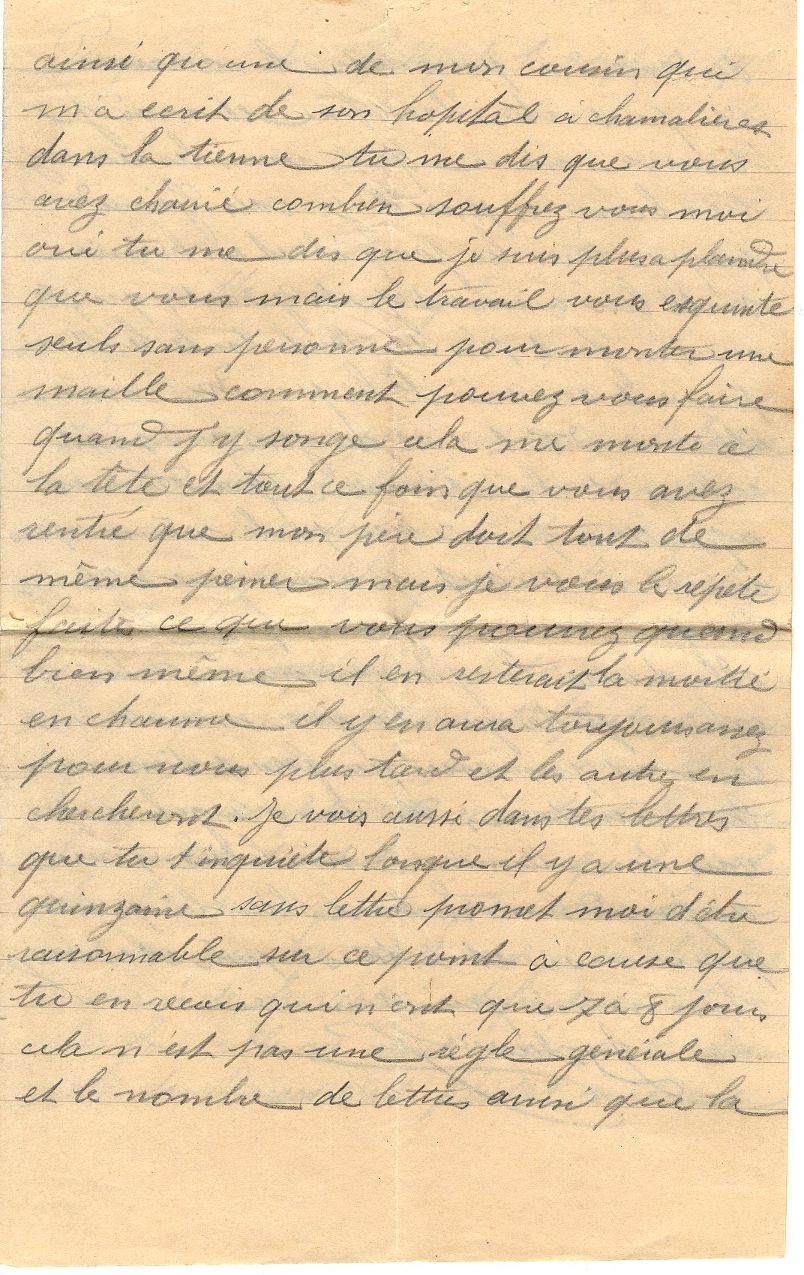 ainsi qu'une de mon cousin qui
m'a ecrit de son hopital à chamalieres
dans la tienne tu me dis que vous
avez charié combien souffrez vous moi
oui tu me dis que je suis plus a plaindre
que vous mais le travail vous esquinte
seuls sans personne pour monter une
maille comment pouvez vous faire
quand j'y songe cela me monte à
la tête et tout ce foin que vous avez
rentré que mon père doit tout de
même peiner mais je vous le répete
faites ce que vous pourrez quand
bien même il en resterait la moitié
en chaume il y en aura toujours assez
pour nous plus tard et les autres en
chercheront. Je vois aussi dans tes lettres
que tu t'inquiéte lorsque il y a une
quinzaine sans lettre promet moi d'être
raisonnable sur ce point à cause que
tu en recois qui n'ont que 7 à 8 jours
cela n'est pas une règle générale
et le nombre de lettres ainsi que la